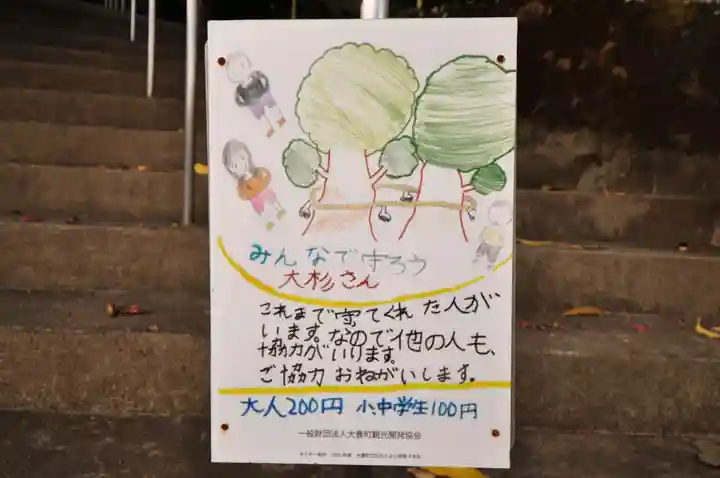 みんなで守ろう
大杉さん
これまで守てくれた人が
います。なので他の人も、
協力がいります。
ご協力おねがいします。
大人200円 小、中学生100円
一般財団法人大豊町観光開発協会